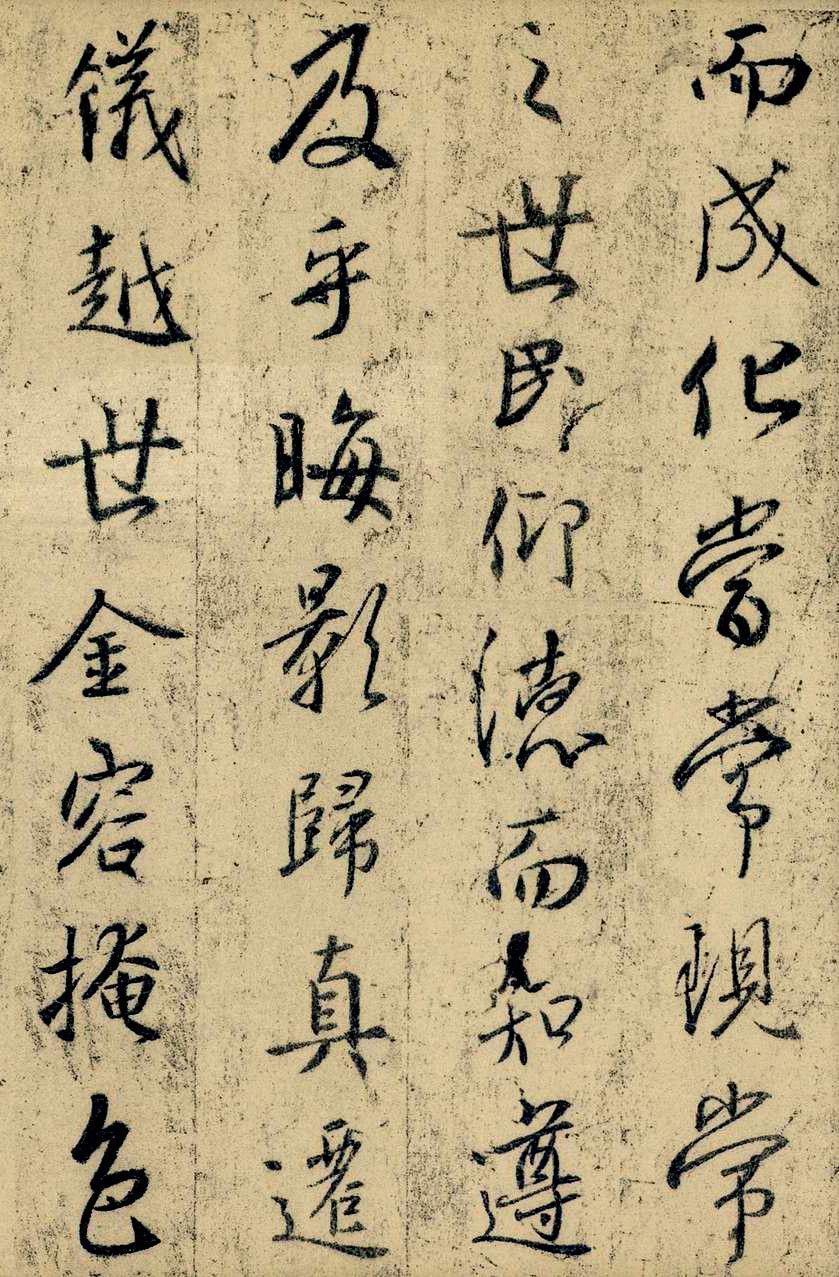 而成化當常現常
之世民仰德而知遵
及乎晦影歸真遷
儀越世金容掩色